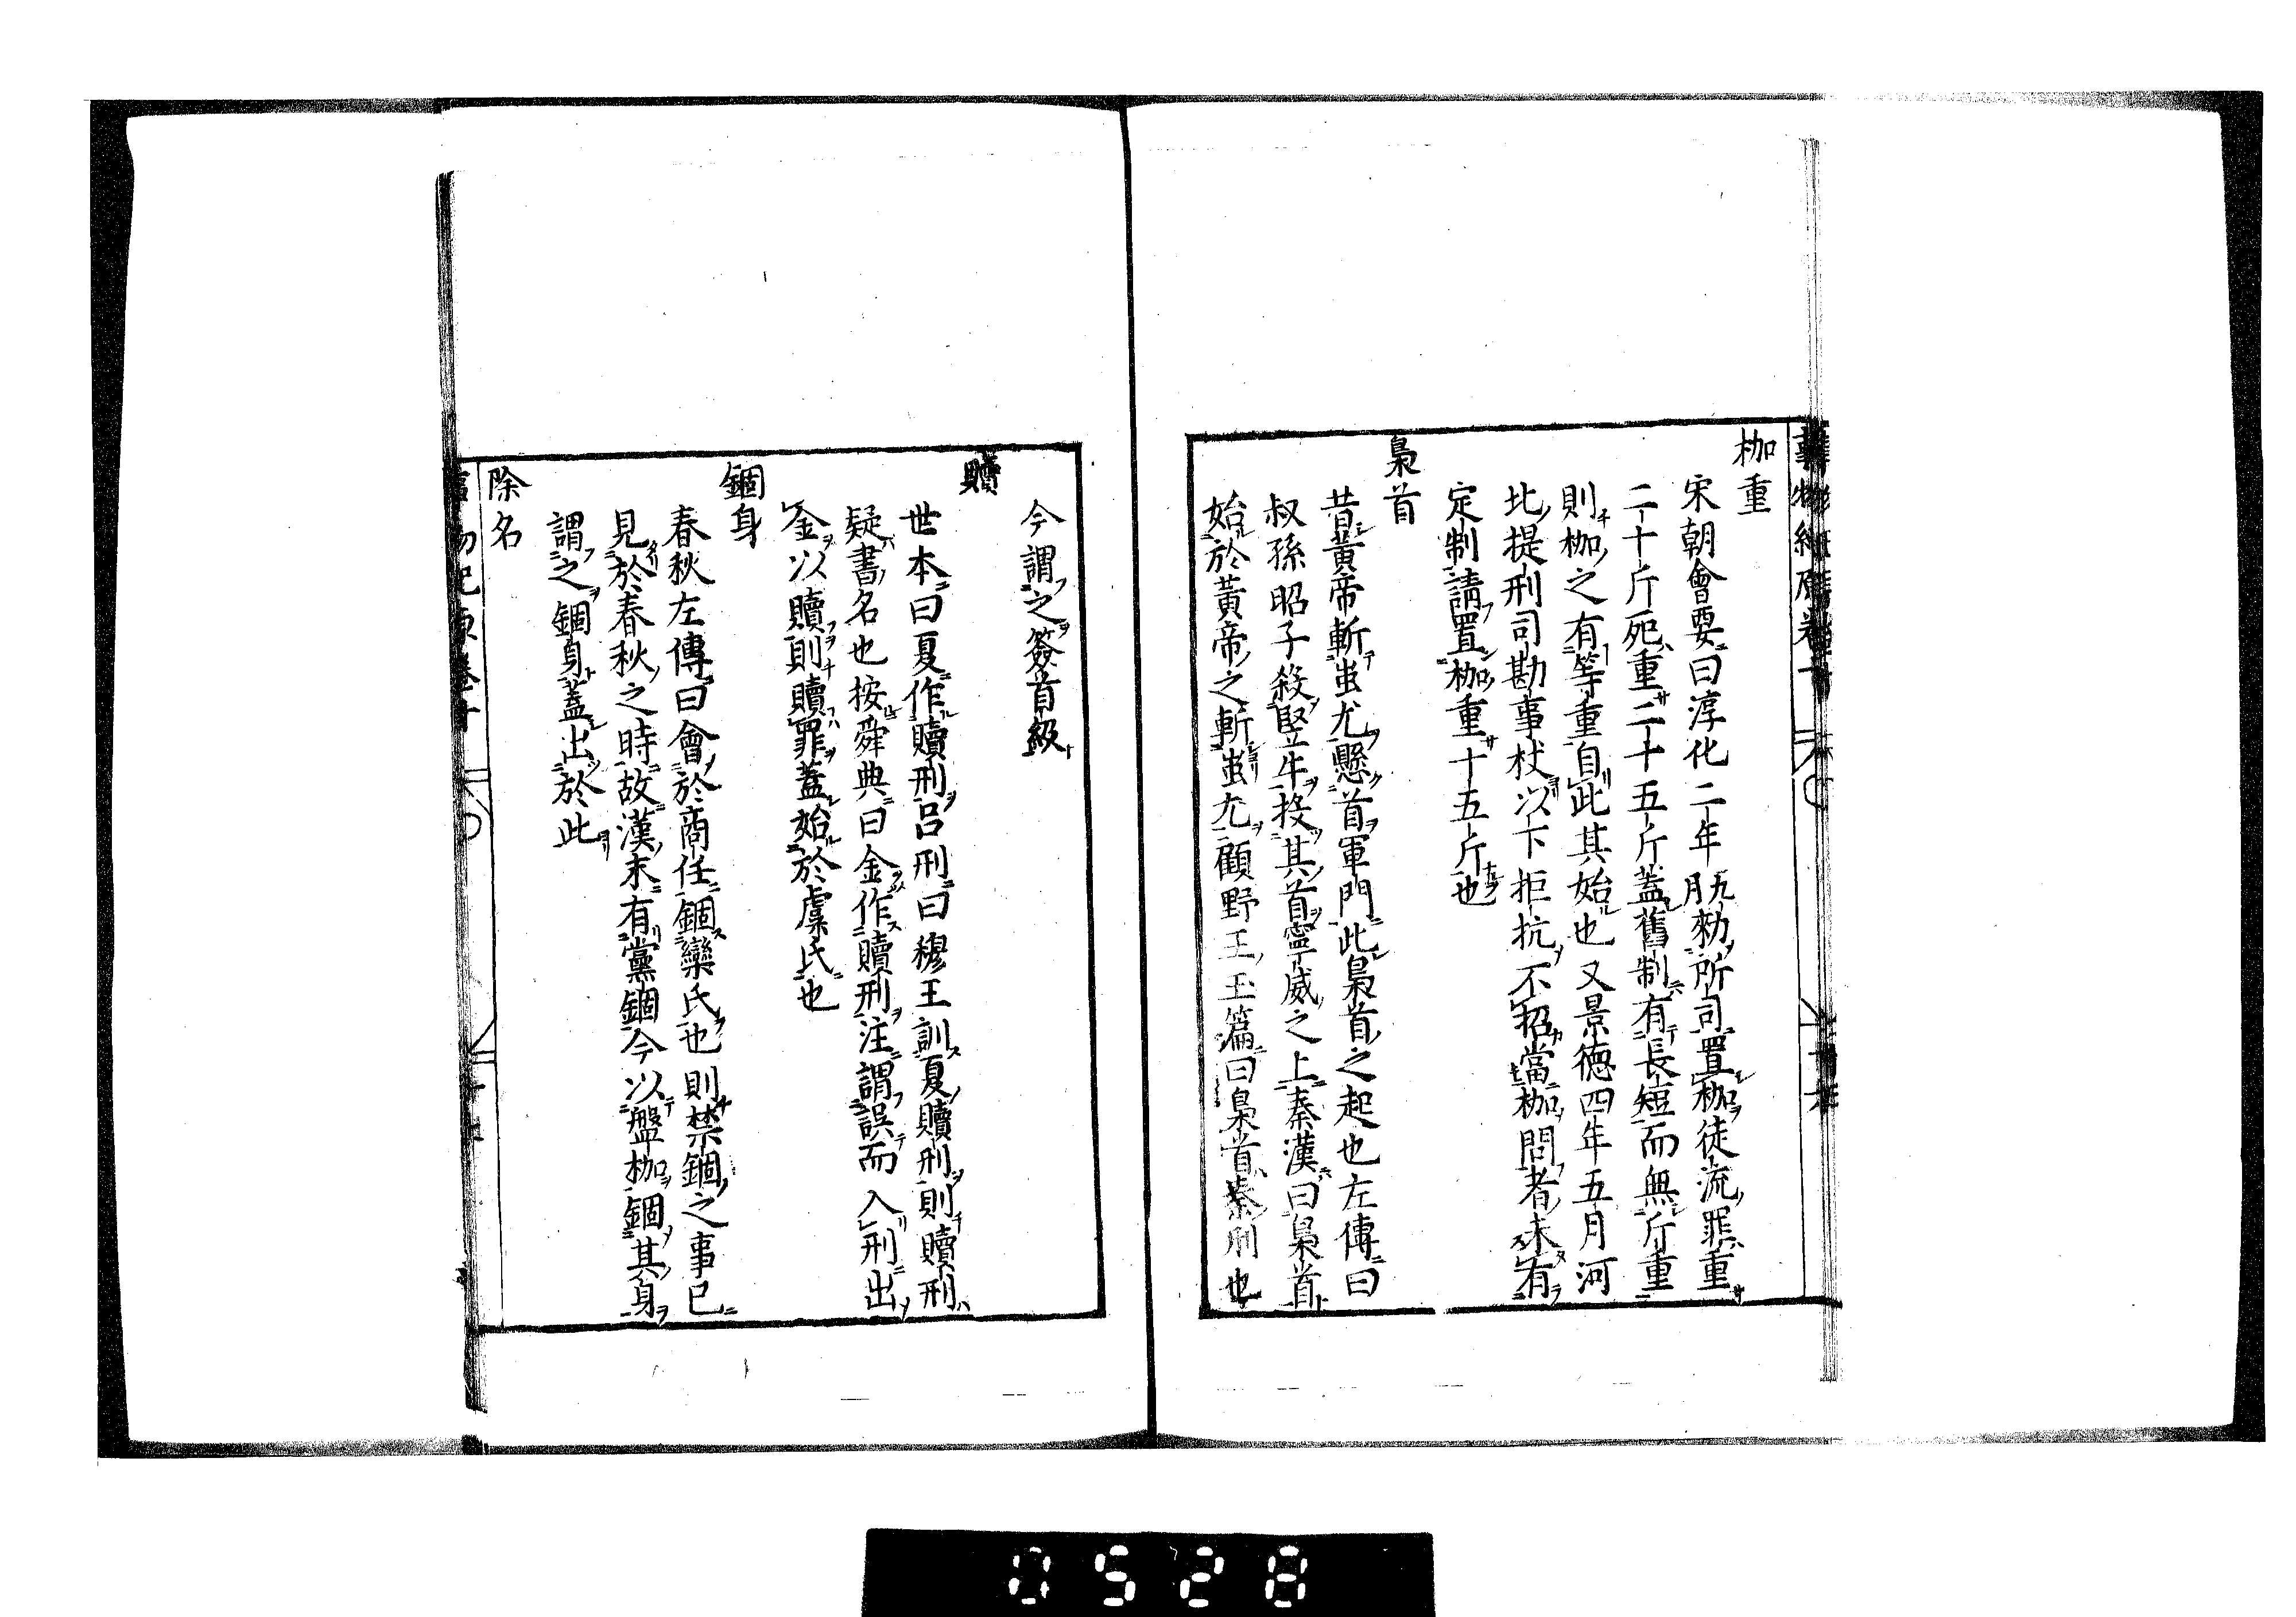 枷重
宋朝會要曰淳化二年九月勑所司置枷徒流罪重
二十斤死重二十五斤蓋舊制有長短而無斤重
則枷之有等重自此其始也又景德四年五月河
北提刑司勘事杖以下拒抗不招當枷問者未有
定制請置枷重十五斤也
梟首
昔黃帝斬蚩尤懸首軍門此梟首之起也左傳曰
叔孫昭子殺竪牛投其首寧威之上秦漢曰梟首
始於黃帝之斬蚩尤顧野王玉篇曰梟首秦刑也
今謂之簽首級
贖
世本曰夏作贖刑呂刑曰穆王訓夏贖刑則贖刑
疑書名也按舜典曰金作贖刑注謂誤而入刑出
金以贖則贖罪蓋始於虞氏也
錮身
春秋左傳曰會於商任錮欒氏也則禁錮之事已
見於春秋之時故漢末有黨錮今以盤枷錮其身
謂之錮身蓋出於此
除名
0528